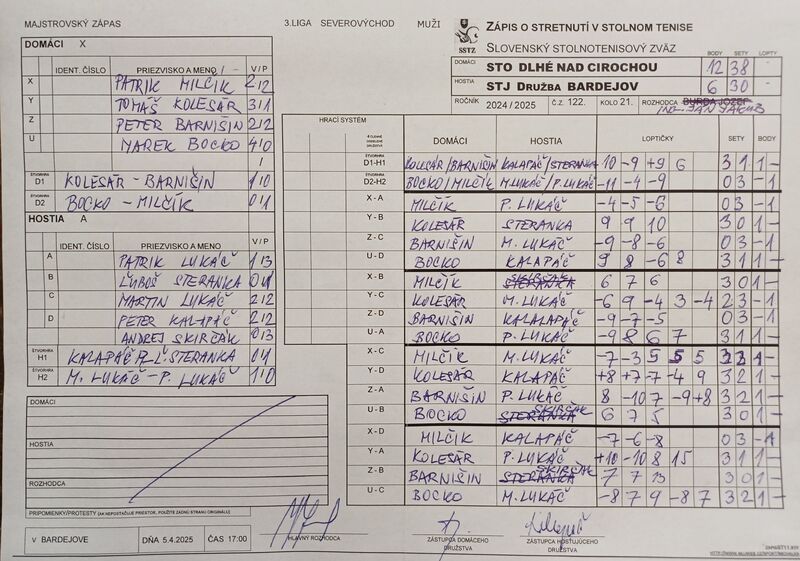 MAJSTROVSKÝ ZÁPAS
3.LIGA SEVEROVÝCHOD MUŽI
ZÁPIS O STRETNUTÍ V STOLNOM TENISE
SSTZ
SLOVENSKÝ STOLNOTENISOVÝ ZVÄZ
BODY SETY LOPTY
DOMÁCI STO DLHÉ NAD CIROCHOU 12 38 -
HOSTIA STJ DRUŽBA BARDEJOV 6 30 -
ROČNÍK 2024 / 2025 Č.Z. 122. KOLO 21. ROZHODCA BURDA JOZEF
ING. JÁN JAKUB
DOMÁCI X
IDENT. ČÍSLO PRIEZVISKO A MENO V / P
X PATRIK MILČÍK 2/2
Y TOMÁŠ KOLESÁR 3/1
Z PETER BARNIŠIN 2/2
U MAREK BOCKO 4/0
ŠTVORHRA D1 KOLESÁR - BARNIŠIN 1/0
ŠTVORHRA D2 BOCKO - MILČÍK 0/1
HOSTIA A
IDENT. ČÍSLO PRIEZVISKO A MENO V / P
A PATRIK LUKÁČ 1/3
B ĽUBOŠ STERANKA 0/1
C MARTIN LUKÁČ 2/2
D PETER KALAPÁČ 2/2
ANDREJ SKIRČÁK 0/3
ŠTVORHRA H1 KALAPÁČ P. - Ľ. STERANKA 0/1
ŠTVORHRA H2 M. LUKÁČ - P. LUKÁČ 1/0
DOMÁCI
HOSTIA
ROZHODCA
PRIPOMIENKY/PROTESTY (AK NEPOSTAČUJE PRIESTOR, POUŽITE ZADNÚ STRANU ORIGINÁLU)
HRACÍ SYSTÉM
DOMÁCI HOSTIA LOPTIČKY SETY BODY
ŠTVORHRA D1-H1 KOLESÁR/BARNIŠIN KALAPÁČ/STERANKA 10 -9 +9 6 3 1 1 -
ŠTVORHRA D2-H2 BOCKO/MILČÍK M.LUKÁČ/P.LUKÁČ -11 -4 -9 0 3 - 1
X - A MILČÍK P. LUKÁČ -4 -5 -6 0 3 - 1
Y - B KOLESÁR STERANKA 9 9 10 3 0 1 -
Z - C BARNIŠIN M. LUKÁČ -9 -8 -6 0 3 - 1
U - D BOCKO KALAPÁČ 9 8 -6 8 3 1 1 -
X - B MILČÍK STERANKA SKIRČÁK 6 7 6 3 0 1 -
Y - C KOLESÁR M. LUKÁČ -6 9 -4 3 -4 2 3 - 1
Z - D BARNIŠIN KALALAPÁČ -9 -7 -5 0 3 - 1
U - A BOCKO P. LUKÁČ -9 8 6 7 3 1 1 -
X - C MILČÍK M. LUKÁČ -7 -3 5 5 5 3 2 1 -
Y - D KOLESÁR KALAPÁČ +8 +7 -7 -4 9 3 2 1 -
Z - A BARNIŠIN P. LUKÁČ 8 -10 7 -9 +8 3 2 1 -
U - B BOCKO STERANKA SKIRČÁK 6 7 5 3 0 1 -
X - D MILČÍK KALAPÁČ -7 -6 -8 0 3 - 1
Y - A KOLESÁR P. LUKÁČ +10 -10 8 15 3 1 1 -
Z - B BARNIŠIN STERANKA SKIRČÁK 7 7 13 3 0 1 -
U - C BOCKO M. LUKÁČ -8 7 9 -8 7 3 2 1 -
V BARDEJOVE DŇA 5.4.2025 ČAS 17:00
HLAVNÝ ROZHODCA
ZÁSTUPCA DOMÁCEHO DRUŽSTVA
ZÁSTUPCA HOSŤUJÚCEHO DRUŽSTVA